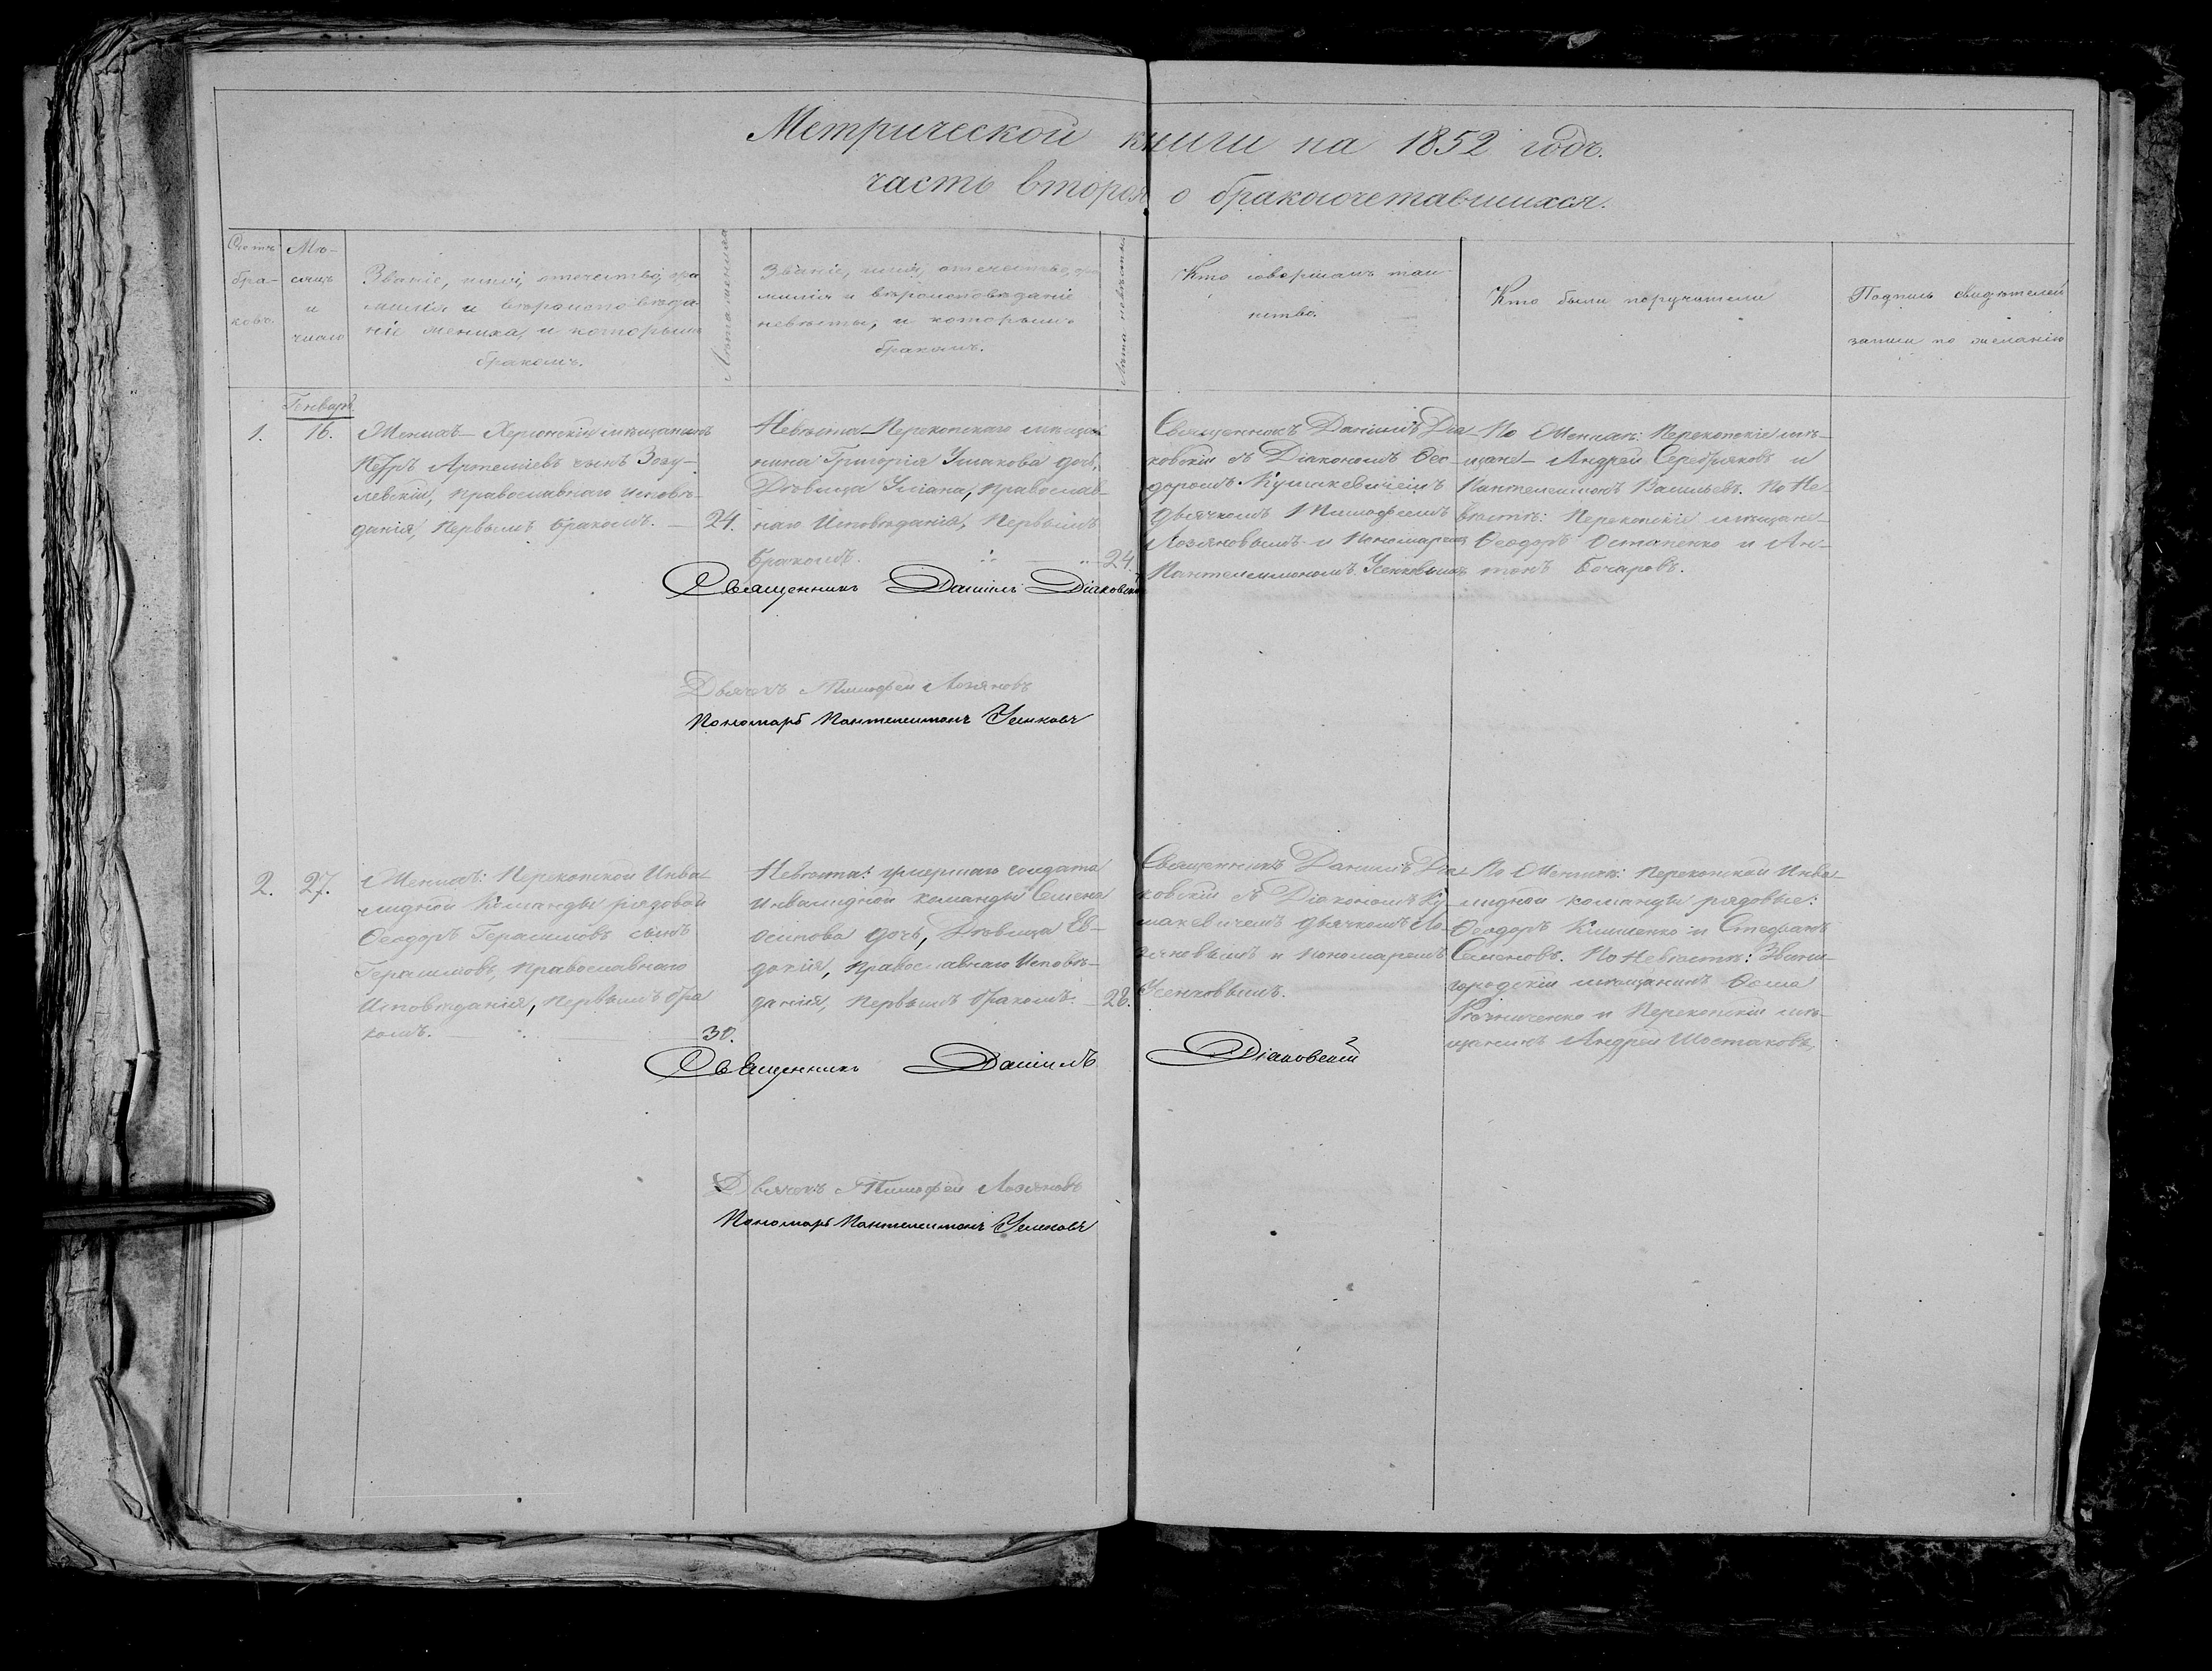 Метрической книги на 1852 годъ.
часть вторая о бракосочетавшихся.
Счотъ бра- ковъ.
Мѣ- сяцъ и число
Званіе, имя, отечество, фа
милія и вѣроисповѣда-
ніе жениха, и которымъ
бракомъ.
Лѣта жениха
Званіе, имя, отечество, фа
милія и вѣроисповѣданіе
невѣсты, и которымъ
бракомъ.
Лѣта невѣсты
Кто совершалъ таи-
нство.
Кто были поручители
Подпись свидѣтелей
записи по желанію
Генварь
1.
16.
Женихъ – Херсонскій мѣщанинъ
Петръ Артеміевъ сынъ Зозу-
левскій, православнаго исповѣ-
данія, первымъ бракомъ. — 24.
Невѣста – Перекопскаго мѣща-
нина Григорія Ушакова дочь,
Дѣвица Уліана, православ-
наго Исповѣданія, Первымъ
бракомъ. 24.
Священникъ Даніилъ Діа-
ковскій съ Діакономъ Ѳео-
доромъ Кушакевичемъ
дьячкомъ Тимофеемъ
Лозяновымъ и Пономаремъ
Пантелеимономъ Усенковымъ
По Женихѣ: Перекопскіе мѣ-
щане – Андрей Серебряковъ и
Пантелеимонъ Васильевъ. По Не-
вѣстѣ: Перекопскіе мѣщане
Ѳеодоръ Остапенко и Ан-
тонъ Бочаровъ.
Священникъ Даніилъ Діаковскій
Дьячекъ Тимофей Лозяновъ
Пономарь Пантелеимонъ Усенковъ
2.
27.
Женихъ: Перекопской Инва-
лидной команды рядовой
Ѳеодоръ Герасимовъ сынъ
Герасимовъ, православнаго
Исповѣданія, Первымъ бра
комъ. — 30.
Невѣста: умершаго солдата
Инвалидной команды Семена
Осипова дочь, Дѣвица Ев-
докія, православнаго Исповѣ-
данія, первымъ бракомъ. — 28.
Священникъ Даніилъ Діа-
ковскій съ Діакономъ Ку-
шакевичемъ дьячкомъ Ло-
зяновымъ и пономаремъ
Усенковымъ.
По Женихѣ: Перекопской Инва-
лидной команды рядовые:
Ѳеодоръ Клименко и Стефанъ
Семеновъ. По Невѣстѣ: Звени-
городскій мѣщанинъ Ѳома
и Перекопскій мѣ-
щанинъ Андрей Шостаковъ,
Священникъ Даніилъ Діаковскій
Дьячекъ Тимофей Лозяновъ
Пономарь Пантелеимонъ Усенковъ